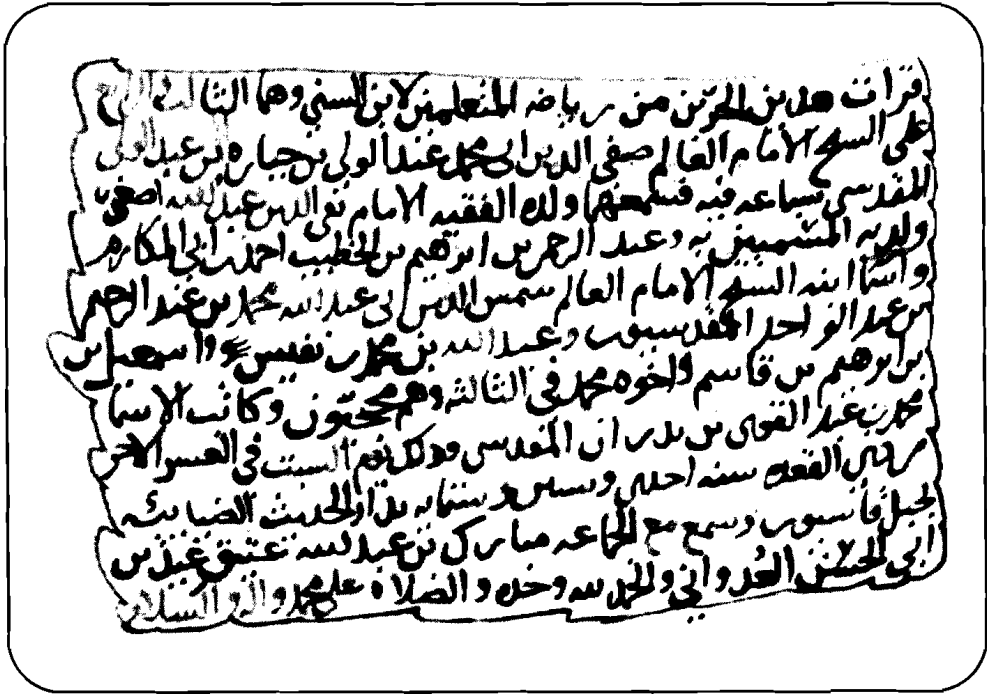 قرات هذين الجزين من رياضه المتعلمين لابن السني وهما الثالث والرابع
على الشيخ الامام العالم صفي الدين ابي محمد عبد الولي بن جباره بن عبد الولي
المقدسي بسماعه فيه فسمعهما ولده الفقيه الامام تقي الدين عبد الله
ولديه المسميين به وعبد الرحمن بن ابرهيم بن الخطيب احمد بن ابي المكارم
واسما ابنه الشيخ الامام العالم شمس الدين ابي عبد الله محمد بن عبد الرحيم
بن عبد الواحد المقدسيون وعبد الله بن محمد بن نفيس واسمعيل بن
بن ابرهيم بن قاسم واخوه محمد في الثالثه وهم وكاتب الاسما
محمد بن عبد القوي بن بدران المقدسي وذلك يوم السبت في العشر الاخر
من ذي القعده سنه احدى وستين وستمايه بدار الحديث الضيائيه
بجبل قاسيون وسمع مع الجماعه مبارك بن عبد الله عتيق
ابي الحسن العدواني والحمد لله وحده والصلاه على محمد واله والسلام